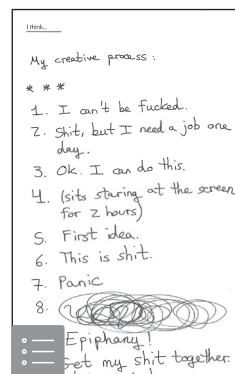 I think...
My creative process :
* * *
1. I can't be fucked.
2. Shit, but I need a job one
day.
3. Ok. I can do this.
4. (sits staring at the screen
for 2 hours)
5. First idea.
6. This is shit.
7. Panic
8.
Epiphany!
Get my shit together.